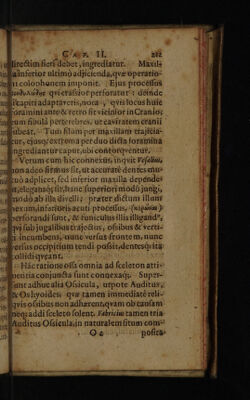 CAP. II. 212
directim fieri debet, ingrediatur. Maxil-
la inferior ultimò adjicienda, quæ operatio-
ni colophonem imponit. Ejus processus
qui crassior perforatur: deinde
capiti adaptaveris, nota, quis locus huic
foramini ante & retrò sit vicinior in Cranio;
eum fibulâ perterebres, ut cavitatem cranii
subeat. Tum filum per maxillam trajicia-
tur, ejusq; extrema per duo dicta foramina
ingrediantur caput, ubi contorqventur.
Verum cum hic connexus, inqvit Vesalius,
non adeo firmus sit, ut accuratè dentes mu-
tuò adplicet, sed inferior maxilla depende-
at, elegansq; sit, hanc superiori modò jungi,
modò ab illa divelli: præter dictum illum
nexum, inferioris acuti processus,
perforandi sunt, & funiculus illis illigandus,
qvi sub jugalibus trajectus, ossibus & verti-
ci incumbens, nunc versus frontem, nunc
versus occipitium tendi possit, dentesq; ita
collidi qveant.
Hâc ratione ossa omnia ad sceleton atti-
nentia conjuncta sunt connexaq;. Super-
sunt adhuc alia Ossicula, utpote Auditus,
& Os hyoides: quæ tamen immediatè reli-
qvis ossibus non adhærent, quam ob causam
neq; addi sceleto solent. Fabricius tamen tria
Auditus Ossicula, in naturalem situm com-
posita